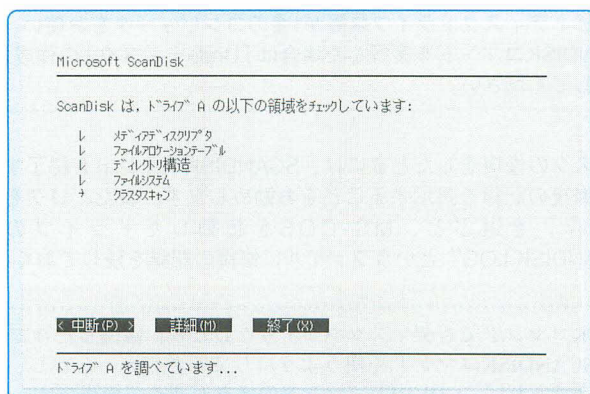 Microsoft ScanDisk
ScanDisk は，ﾄﾞﾗｲﾌﾞ A の以下の領域をﾁｪｯｸしています:
レ ﾒﾃﾞｨｱﾃﾞｨｽｸﾘﾌﾟﾀ
レ ﾌｧｲﾙｱﾛｹｰｼｮﾝﾃｰﾌﾞﾙ
レ ﾃﾞｨﾚｸﾄﾘ構造
レ ﾌｧｲﾙｼｽﾃﾑ
→ ｸﾗｽﾀｽｷｬﾝ
< 中断(P) > 詳細(M) 終了(X)
ﾄﾞﾗｲﾌﾞ A を調べています...